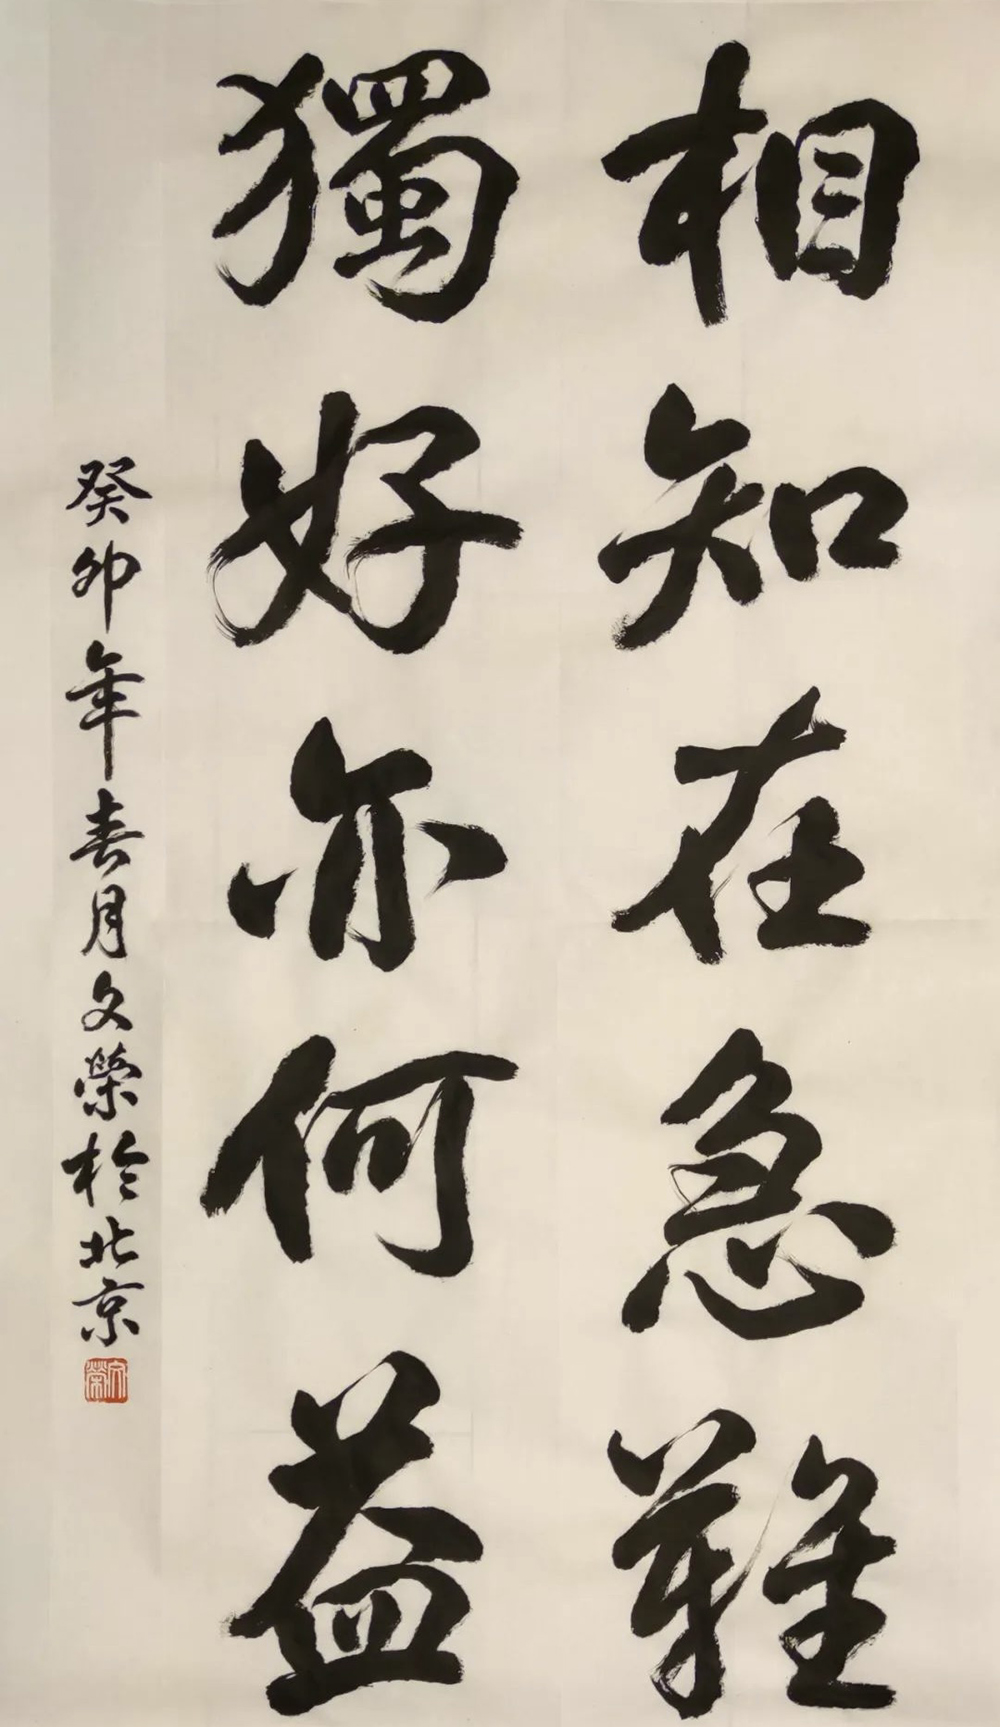 相知在急難
獨好亦何益
癸卯年春月文榮於北京
文榮